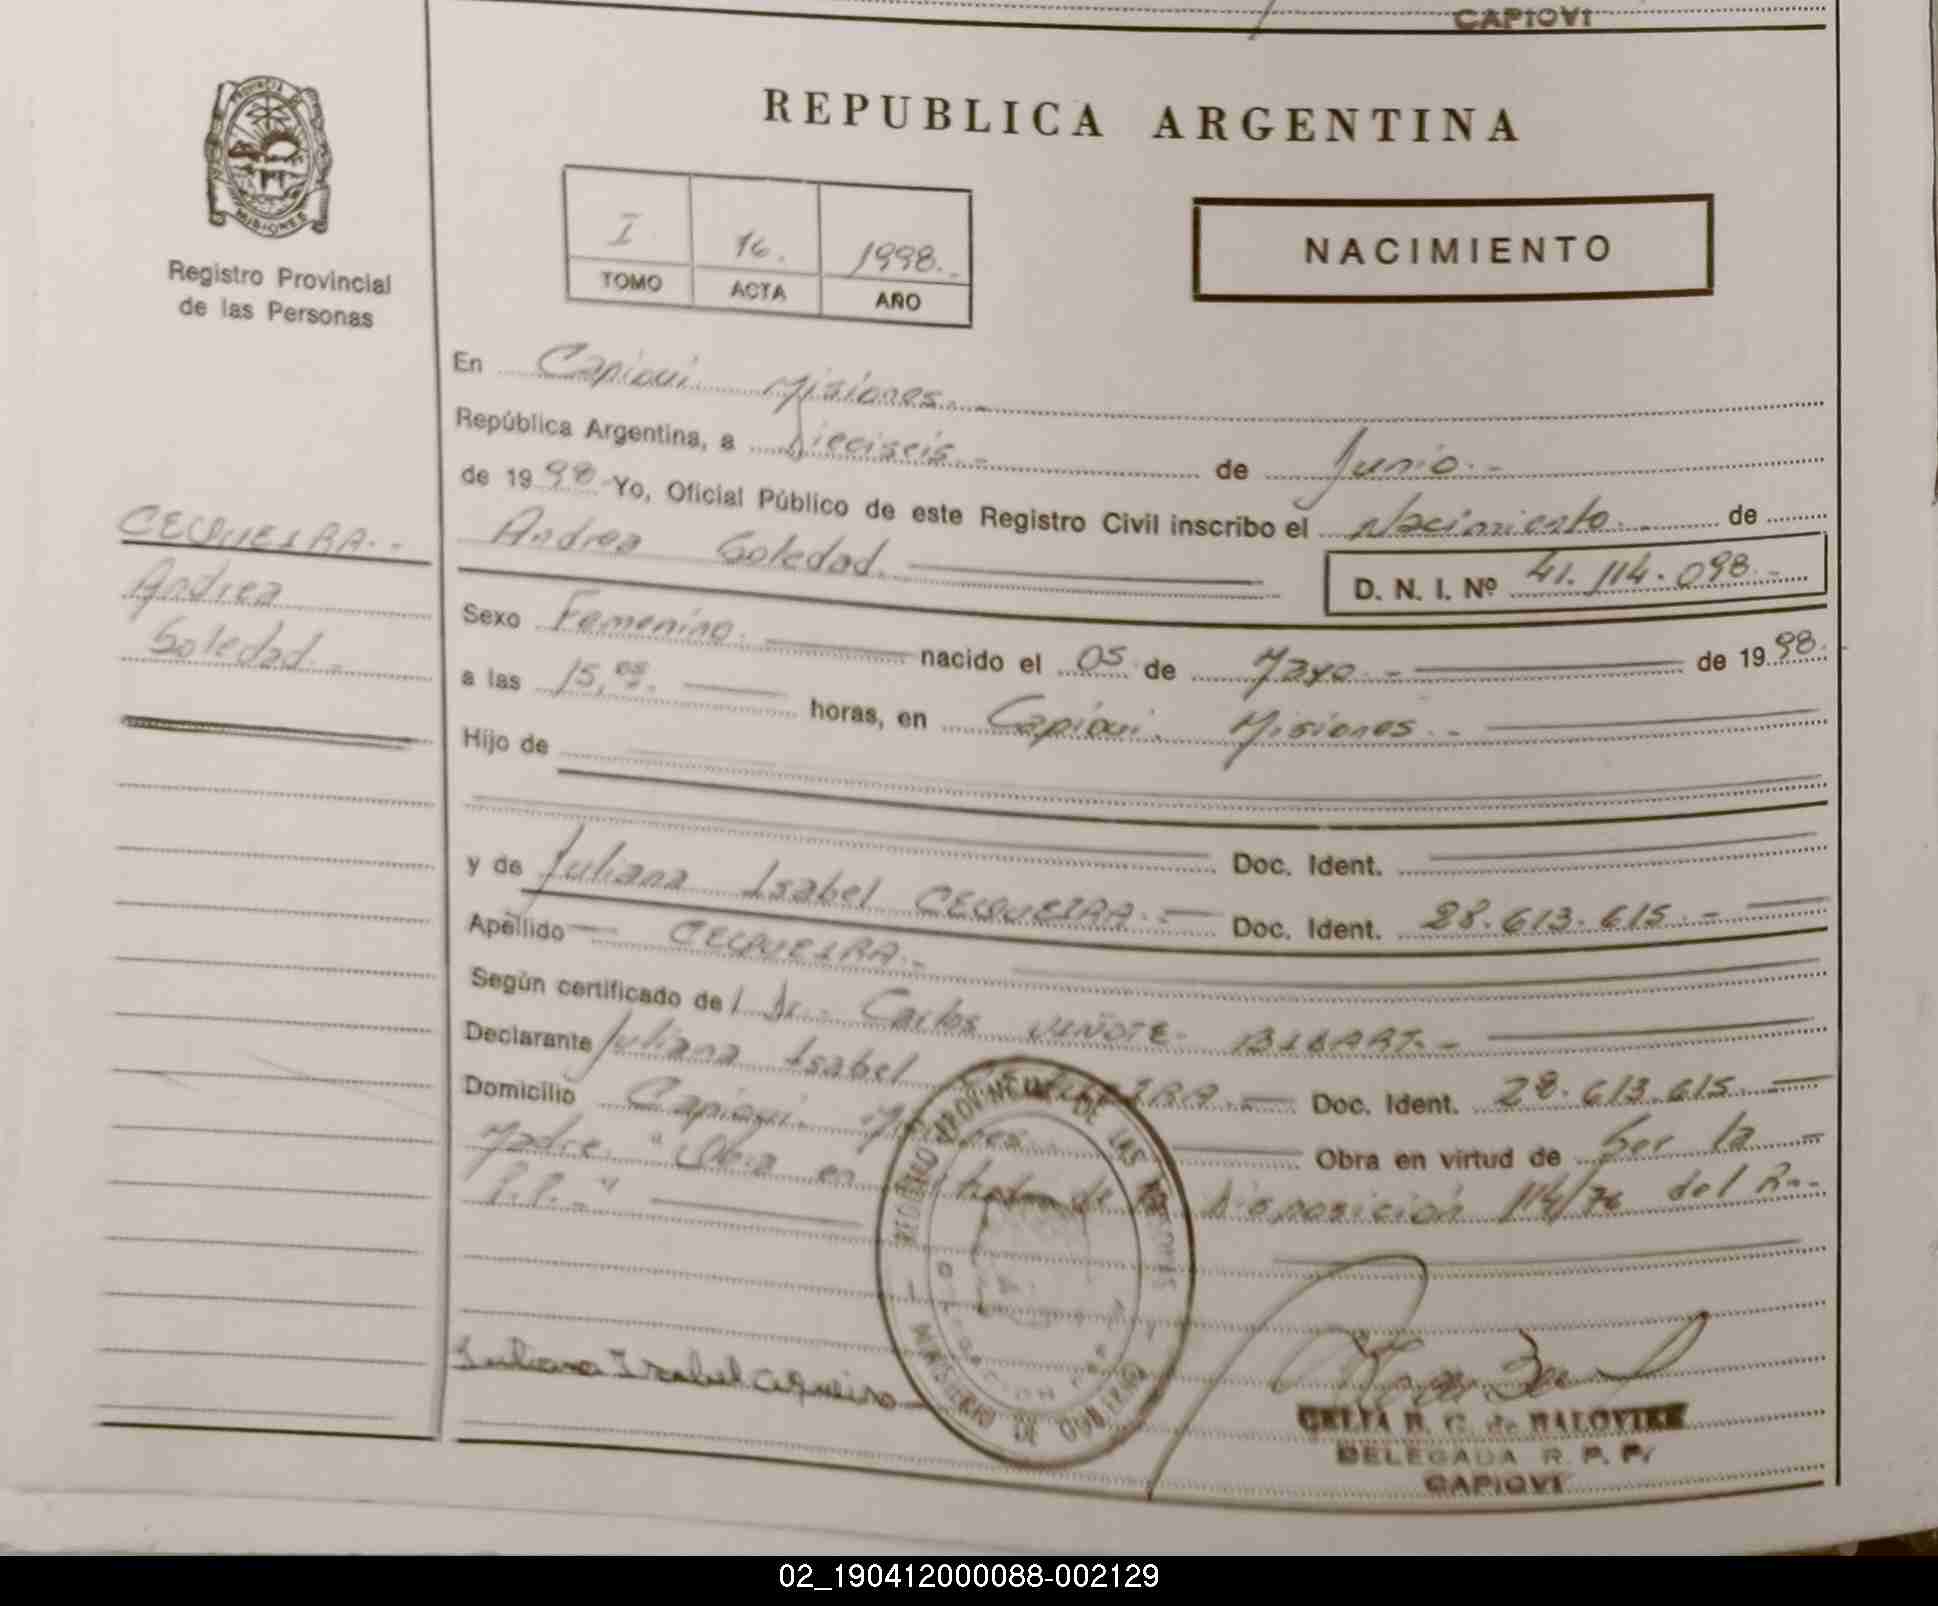 CAPIOVI
PROVINCIA DE
MISIONES
Registro Provincial
de las Personas
REPUBLICA ARGENTINA
I 16. 1998.
TOMO ACTA AÑO
NACIMIENTO
En Capiovi Misiones.-
República Argentina, a Dieciseis.- de Junio.-
de 1998 Yo, Oficial Público de este Registro Civil inscribo el Nacimiento.- de
Andrea Soledad.
D. N. I. Nº 41.114.098.-
CEQUEIRA.-
Andrea
Soledad.-
Sexo Femenino. nacido el 05 de Mayo.- de 1998.
a las 15,05. horas, en Capiovi. Misiones.-
Hijo de
Doc. Ident.
y de Juliana Isabel CEQUEIRA.- Doc. Ident. 28.613.615.-
Apellido CEQUEIRA.-
Según certificado del Dr. Carlos
Declarante Juliana Isabel CEQUEIRA.- Doc. Ident. 28.613.615.-
Domicilio Capiovi. Misiones Obra en virtud de Ser la
Madre. "Obra en de la Disposición 114/76 del R.-
P.P.-"
REGISTRO PROVINCIAL DE LAS PERSONAS
MINISTERIO DE GOBIERNO
Juliana Isabel Ceqneira
CELIA R. G. de MALOVIEK
DELEGADA R. P. P.
CAPIOVI
02_190412000088-002129